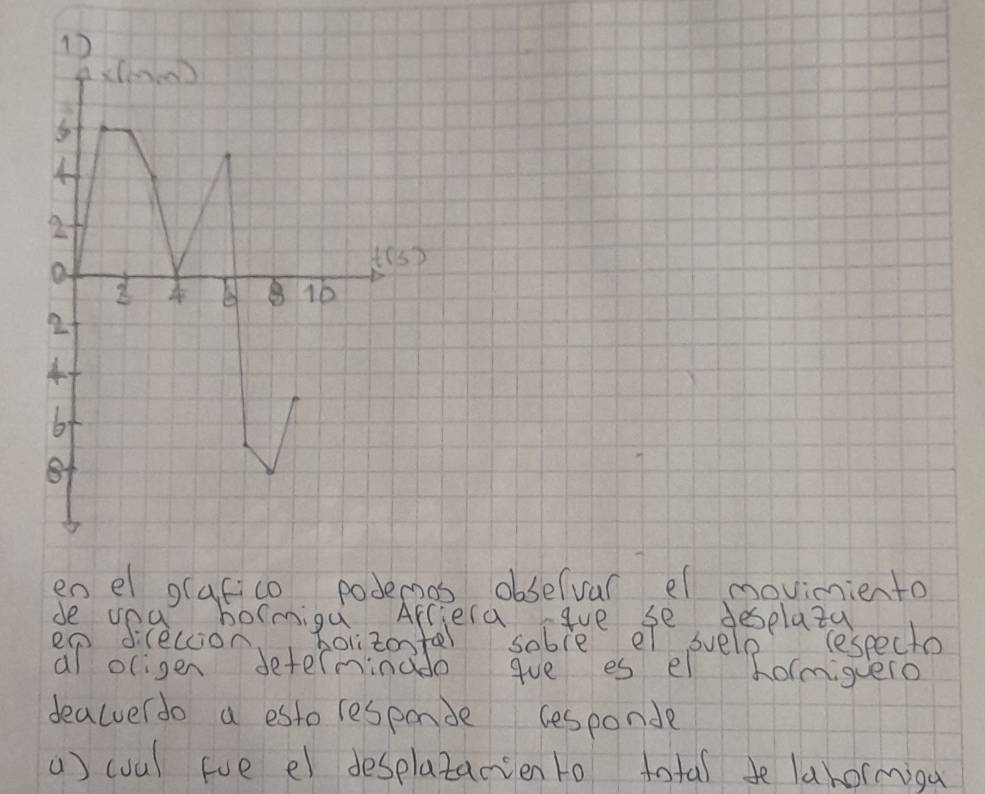 1)
x(mm)
6
4
2
0
t(s)
2 4 6 8 10
2
4
6
8
en el grafico podemos observar el movimiento
de una hormiga Arriera que se desplaza
en direccion horizontal sobre el suelo respecto
al origen determinado que es el hormiguero
deacuerdo a esto responde responde
a) cual fue el desplazamiento total de la hormiga